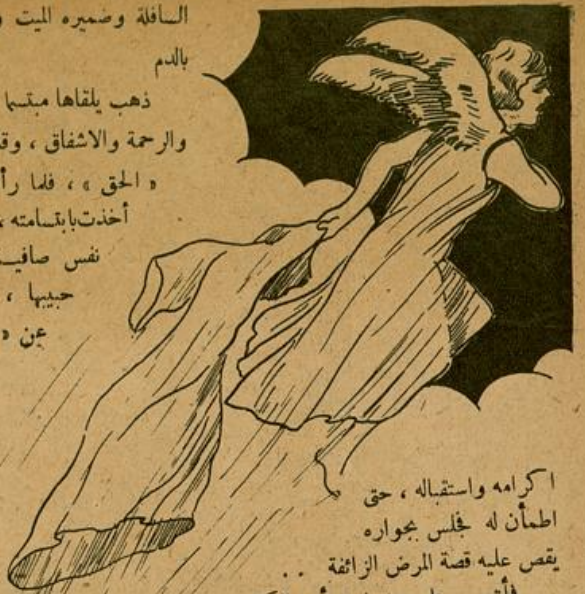 السافلة وضميره الميت
بالدم
ذهب يلقاها مبتسما
والرحمة والاشفاق ، وقد
« الحق » ، فلما رأ
أخذت بابتسامته ،
نفس صافيـ
حبيبها ،
عن «
اكرامه واستقباله ، حتى
اطمأن له فجلس بجواره
يقص عليه قصة المرض الزائفة . .